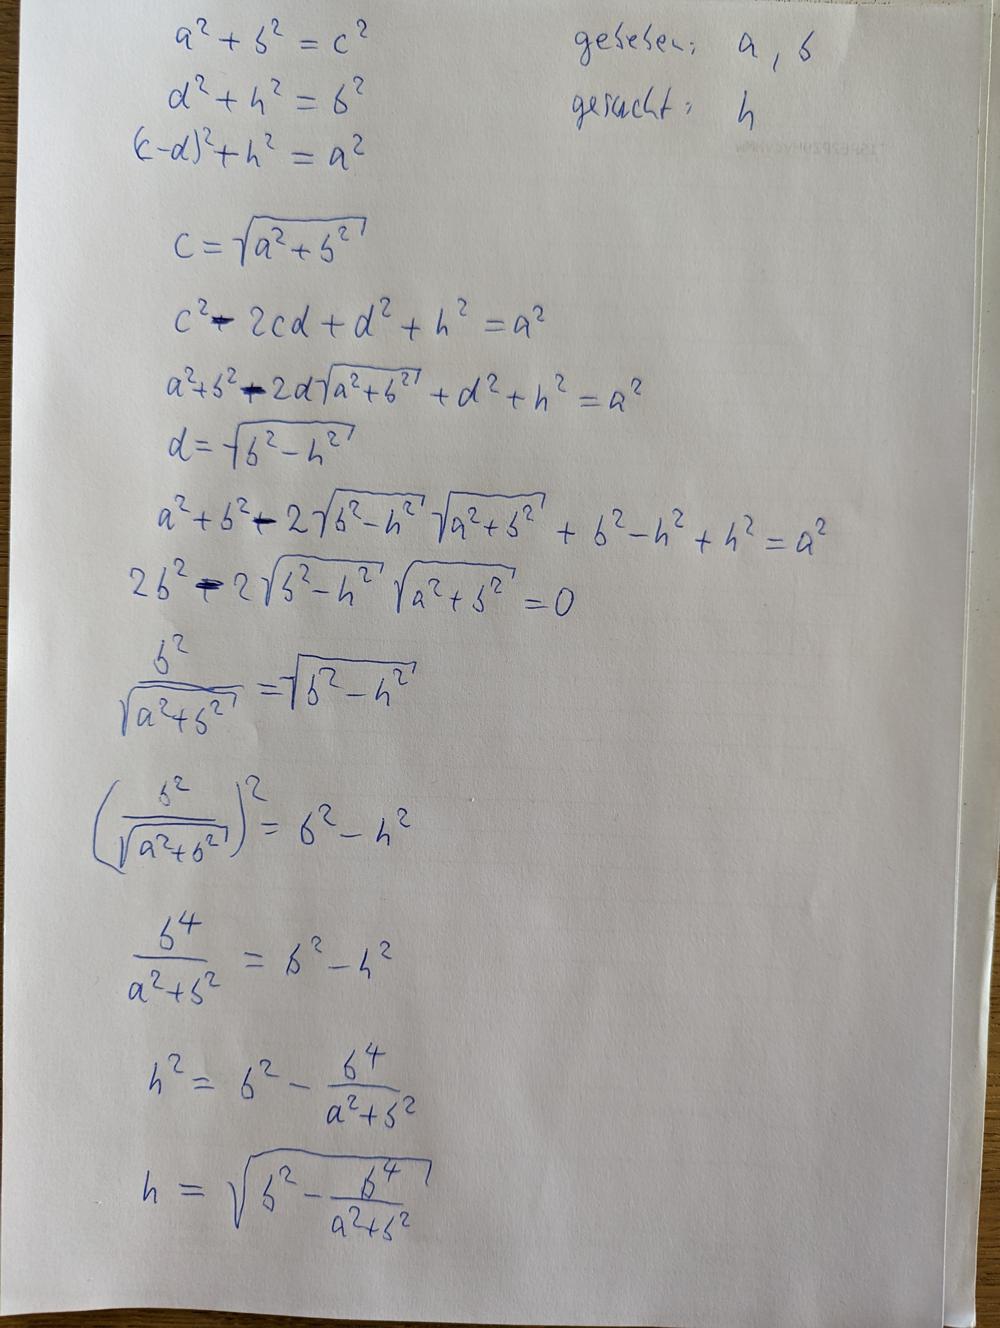 a² + b² = c² gegeben: a, b
d² + h² = b² gesucht: h
(c-d)² + h² = a²
c = √(a² + b²)
c² - 2cd + d² + h² = a²
a² + b² - 2d√(a² + b²) + d² + h² = a²
d = √(b² - h²)
a² + b² - 2√(b² - h²) √(a² + b²) + b² - h² + h² = a²
2b² - 2√(b² - h²) √(a² + b²) = 0
b² / √(a² + b²) = √(b² - h²)
(b² / √(a² + b²))² = b² - h²
b⁴ / (a² + b²) = b² - h²
h² = b² - b⁴ / (a² + b²)
h = √(b² - b⁴ / (a² + b²))